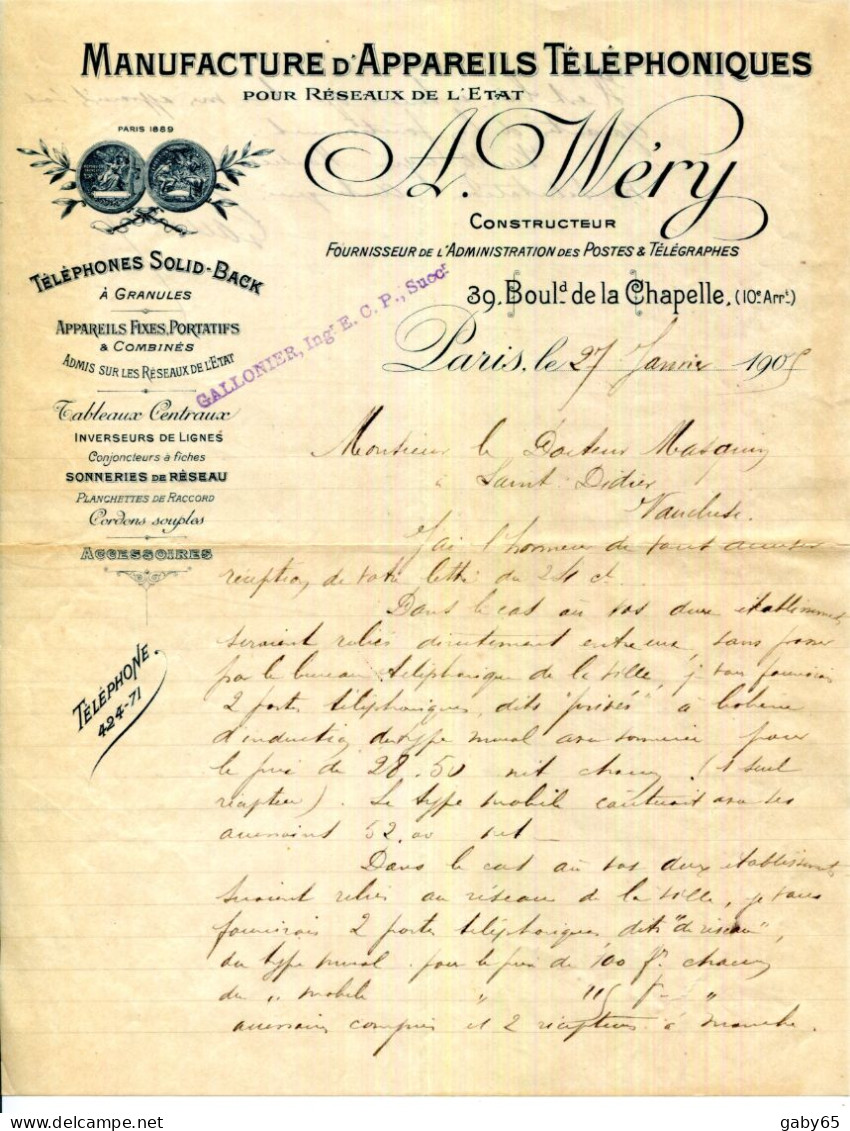 MANUFACTURE D'APPAREILS TÉLÉPHONIQUES
POUR RÉSEAUX DE L'ETAT
PARIS 1889
A. Wéry
CONSTRUCTEUR
FOURNISSEUR DE L'ADMINISTRATION DES POSTES & TÉLÉGRAPHES
39, Boul.d de la Chapelle, (10e Arr.t)
TÉLÉPHONES SOLID-BACK
À GRANULES
APPAREILS FIXES, PORTATIFS
& COMBINÉS
ADMIS SUR LES RÉSEAUX DE L'ETAT
Tableaux Centraux
INVERSEURS DE LIGNES
Conjoncteurs à fiches
SONNERIES DE RÉSEAU
PLANCHETTES DE RACCORD
Cordons souples
ACCESSOIRES
TÉLÉPHONE.
424-71
GALLONIER, Ingr E. C. P., Succr
Paris, le 27 Janvier 1905
Monsieur le Docteur Masquin
à Saint Didier
Vaucluse.
J'ai l'honneur de vous accuser
réception de votre lettre du 24 ct.
Dans le cas où vos deux établissements
seraient reliés directement entre eux, sans passer
par le bureau téléphonique de la ville, je vous fournirais
2 postes téléphoniques, dits "privés" à bobine
d'induction, du type mural avec sonnerie pour
le prix de 28.50 net chacun (1 seul
récepteur). Le type mobile coûterait avec ses
accessoires 52.00 net
Dans le cas où vos deux établissements
seraient reliés au réseau de la ville, je vous
fournirais 2 postes téléphoniques dits "de réseau",
du type mural pour le prix de 100 fr. chacun
du " mobile " 115 f - "
accessoires compris et 2 récepteurs à manche.
gaby65